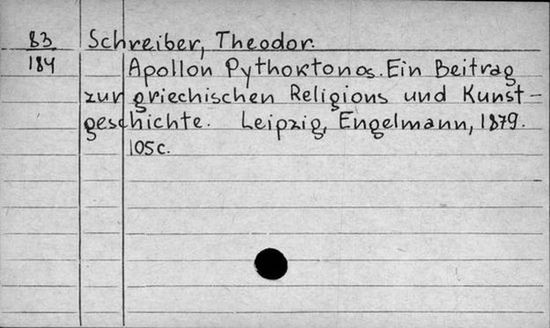 83 Schreiber, Theodor.
184 Apollon Pythoktonos. Ein Beitrag
zur griechischen Religions und Kunst-
geschichte. Leipzig, Engelmann, 1879.
105c.